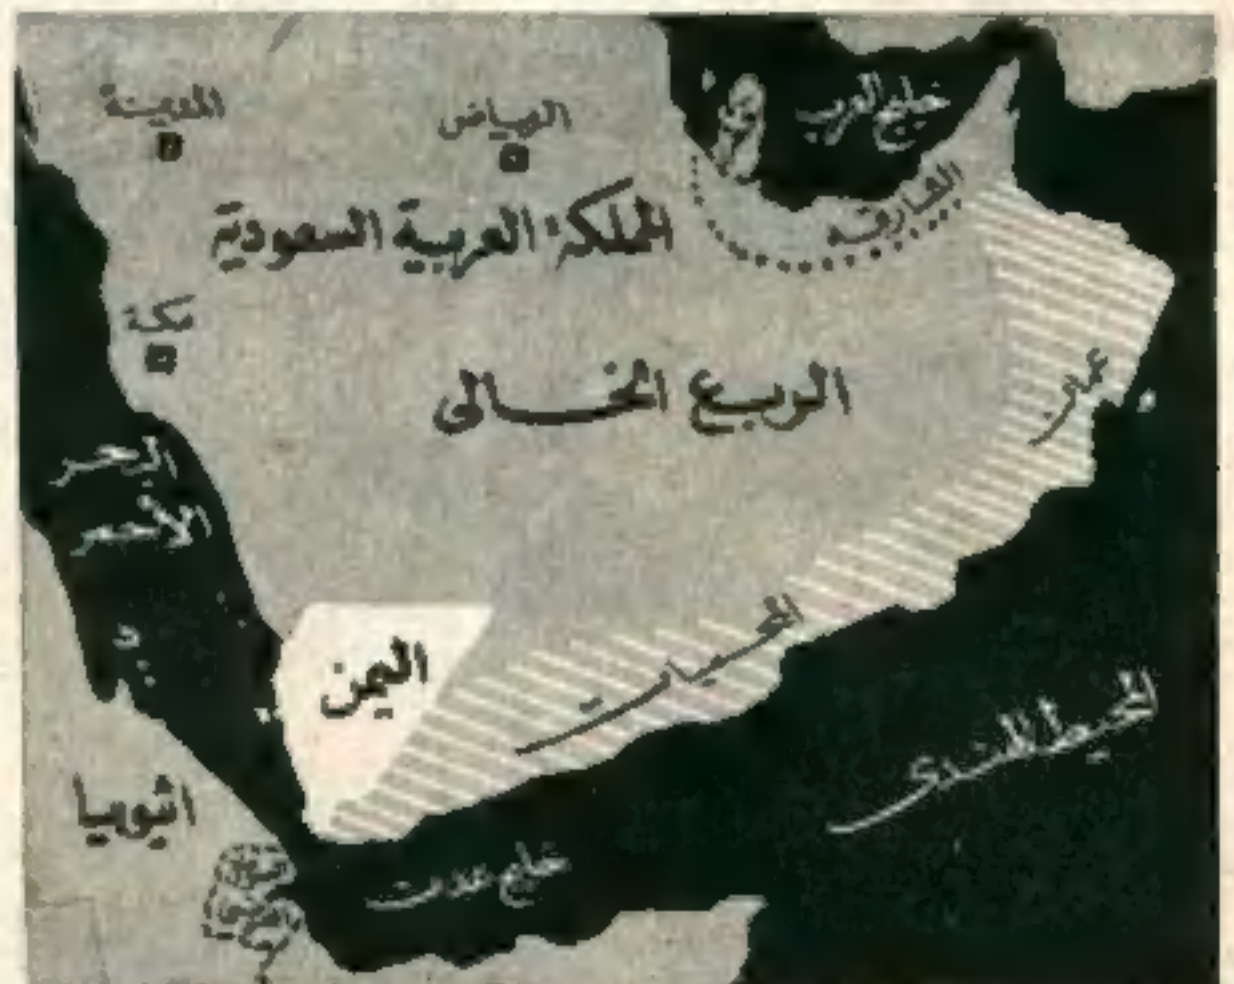 المدينة
الرياض
خليج العرب
المملكة العربية السعودية
مكة
الربع الخالى
عمان
البحر
الأحمر
اليمن
المحميات
المحيط الهندى
اثيوبيا
خليج عدن